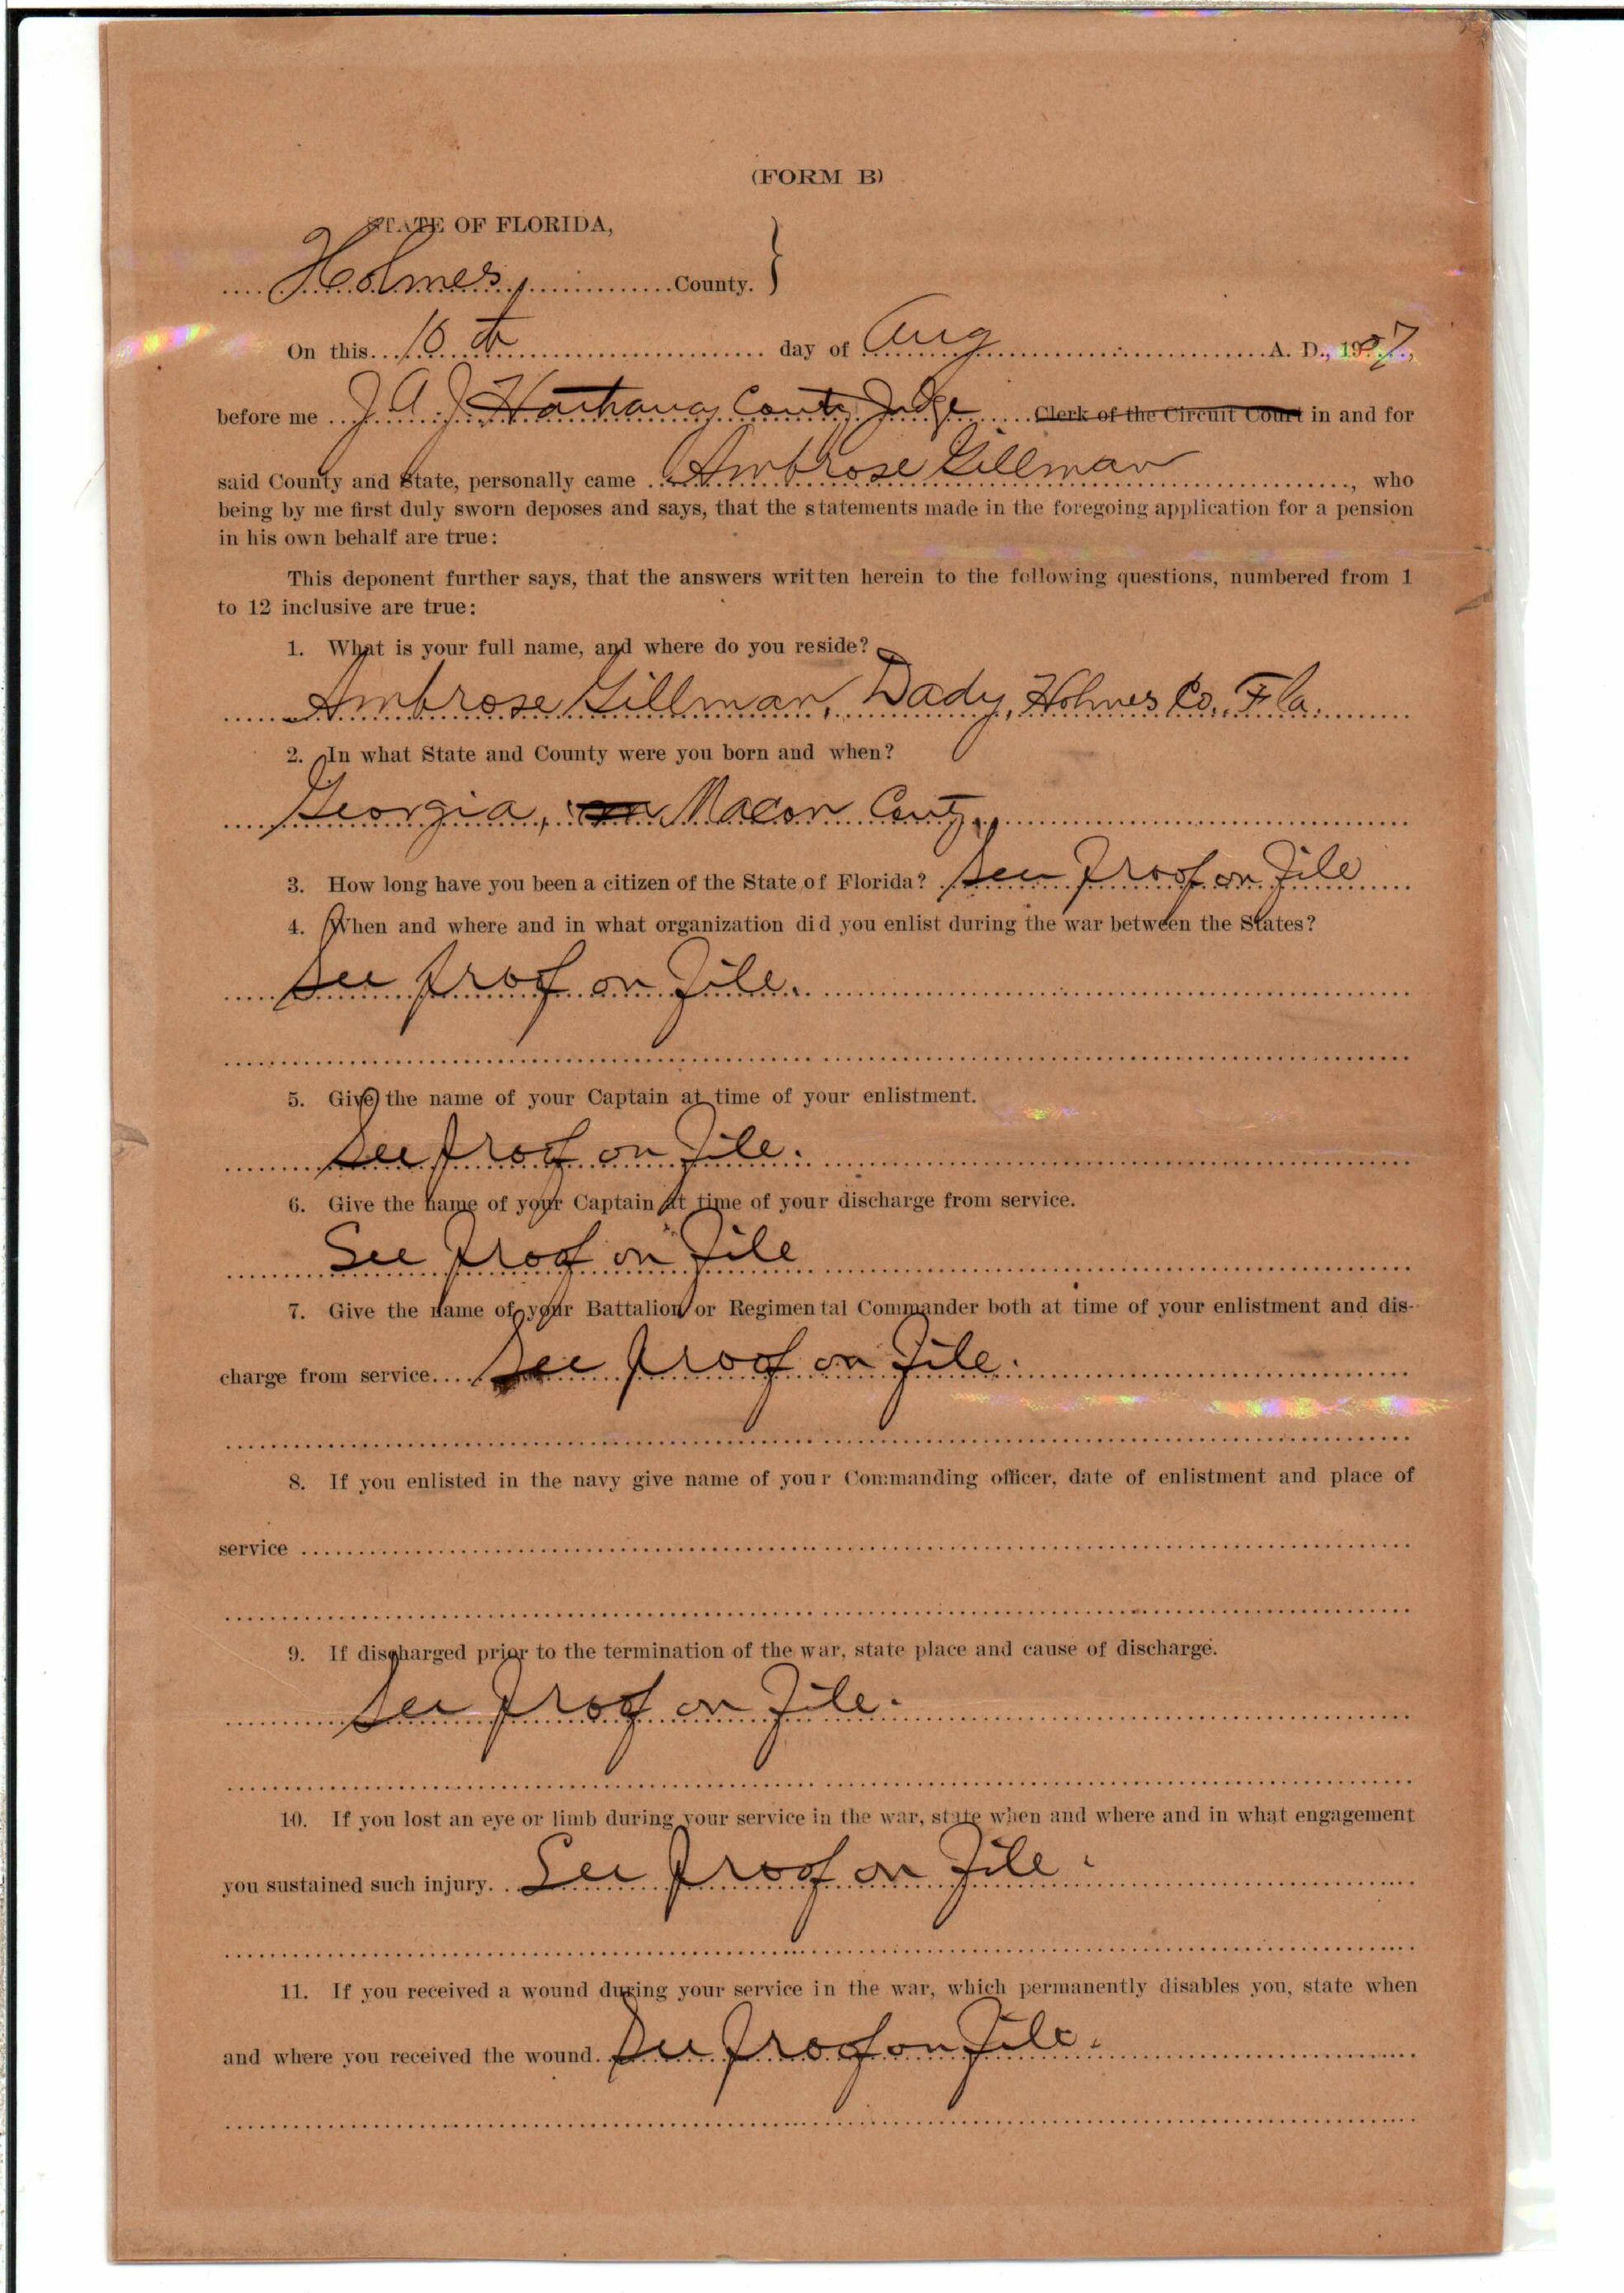 (FORM B)
STATE OF FLORIDA,
Holmes County.
On this 10th day of Aug A. D., 1907,
before me J. A. J. Hathaway County Judge Clerk of the Circuit Court in and for
said County and State, personally came Ambrose Gillman, who
being by me first duly sworn deposes and says, that the statements made in the foregoing application for a pension
in his own behalf are true:
This deponent further says, that the answers written herein to the following questions, numbered from 1
to 12 inclusive are true:
1. What is your full name, and where do you reside?
Ambrose Gillman, Dady, Holmes Co., Fla.
2. In what State and County were you born and when?
Georgia, Macon County,
3. How long have you been a citizen of the State of Florida? See Proof on File
4. When and where and in what organization did you enlist during the war between the States?
See proof on File.
5. Give the name of your Captain at time of your enlistment.
See proof on File.
6. Give the name of your Captain at time of your discharge from service.
See Proof on File
7. Give the name of your Battalion or Regimental Commander both at time of your enlistment and dis-
charge from service. See proof on File.
8. If you enlisted in the navy give name of your Commanding officer, date of enlistment and place of
service
9. If discharged prior to the termination of the war, state place and cause of discharge.
See Proof on File.
10. If you lost an eye or limb during your service in the war, state when and where and in what engagement
you sustained such injury. See Proof on File.
11. If you received a wound during your service in the war, which permanently disables you, state when
and where you received the wound. See proof on File.